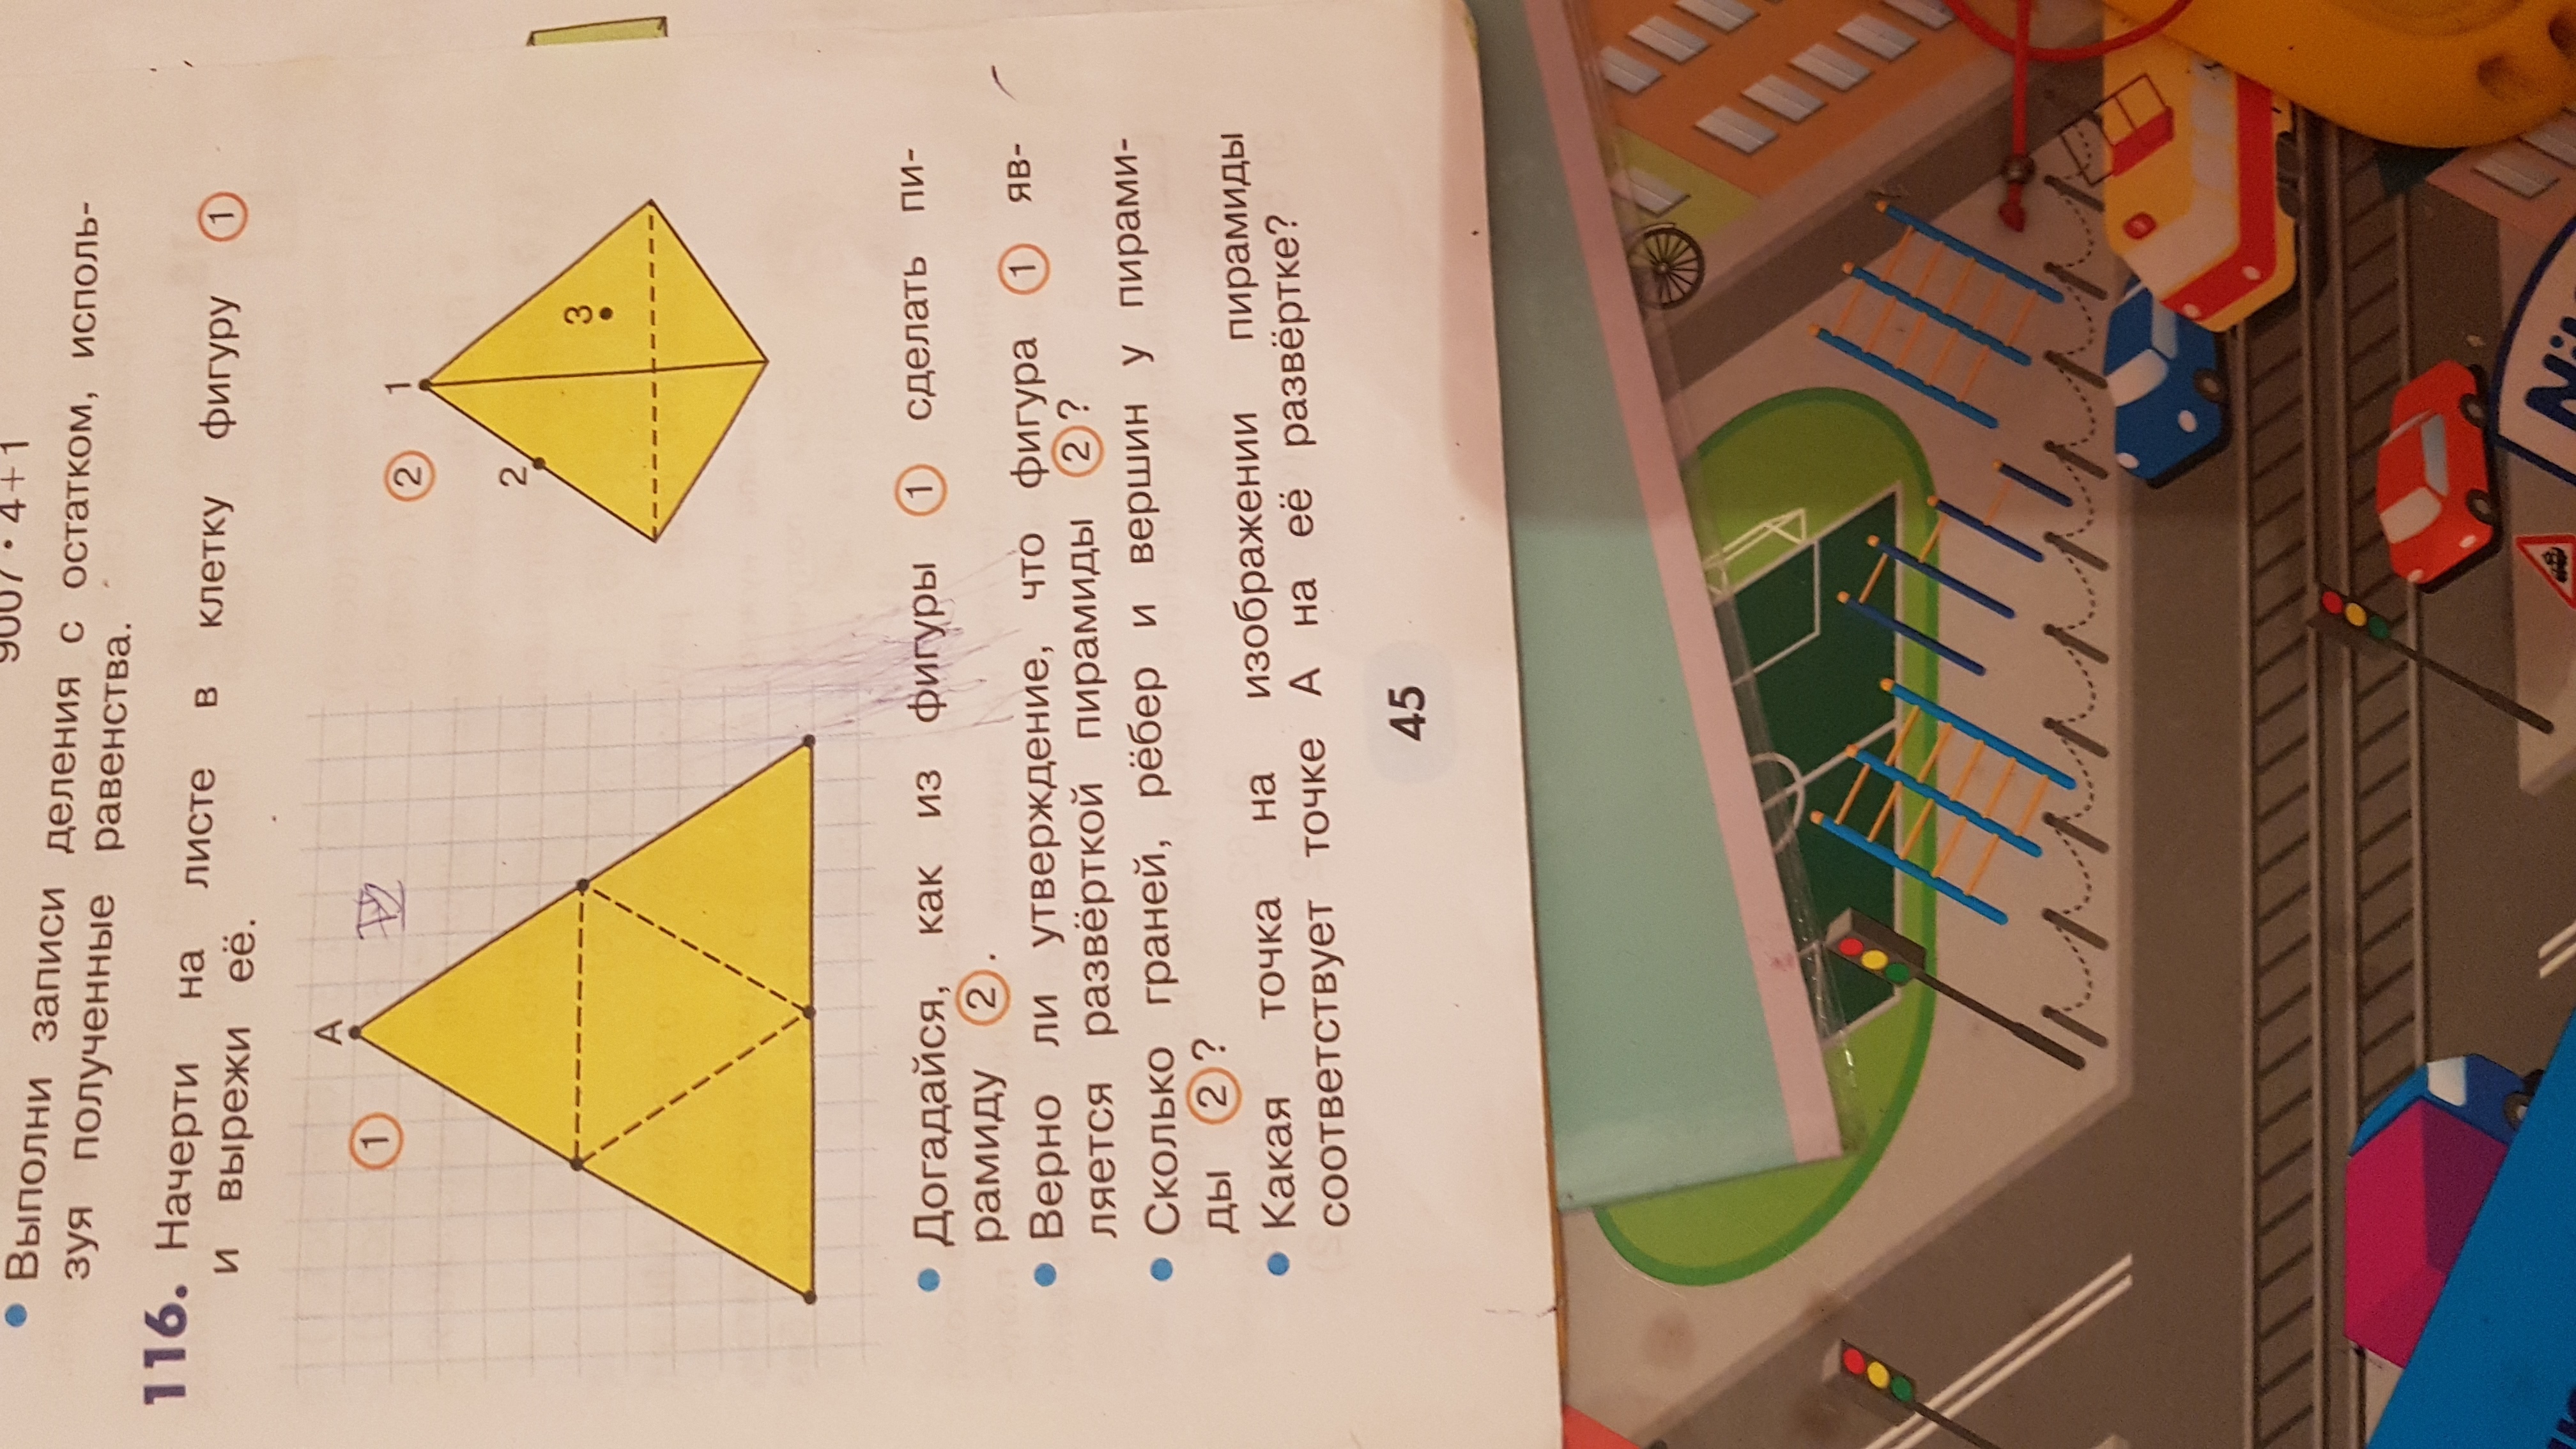 9007 · 4 + 1
• Выполни записи деления с остатком, исполь-
зуя полученные равенства.
116. Начерти на листе в клетку фигуру 1
и вырежи её.
1
A
2
1
2
3
• Догадайся, как из фигуры 1 сделать пи-
рамиду 2.
• Верно ли утверждение, что фигура 1 яв-
ляется развёрткой пирамиды 2?
• Сколько граней, рёбер и вершин у пирами-
ды 2?
• Какая точка на изображении пирамиды
соответствует точке А на её развёртке?
45